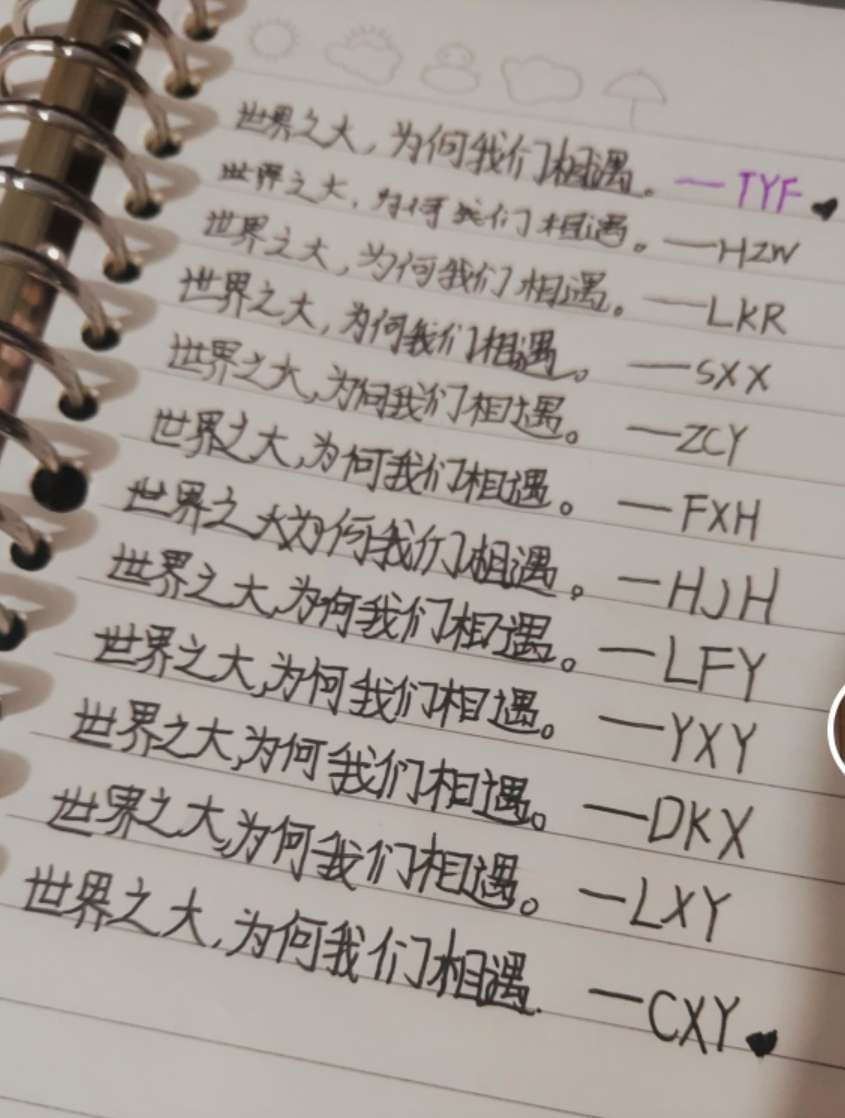 世界之大，为何我们相遇。—TYF
世界之大，为何我们相遇。—HZW
世界之大，为何我们相遇。—LKR
世界之大，为何我们相遇。—SXX
世界之大，为何我们相遇。—ZCY
世界之大，为何我们相遇。—FXH
世界之大为何我们相遇。—HJH
世界之大，为何我们相遇。—LFY
世界之大，为何我们相遇。—YXY
世界之大，为何我们相遇。—DKX
世界之大，为何我们相遇。—LXY
世界之大，为何我们相遇.—CXY